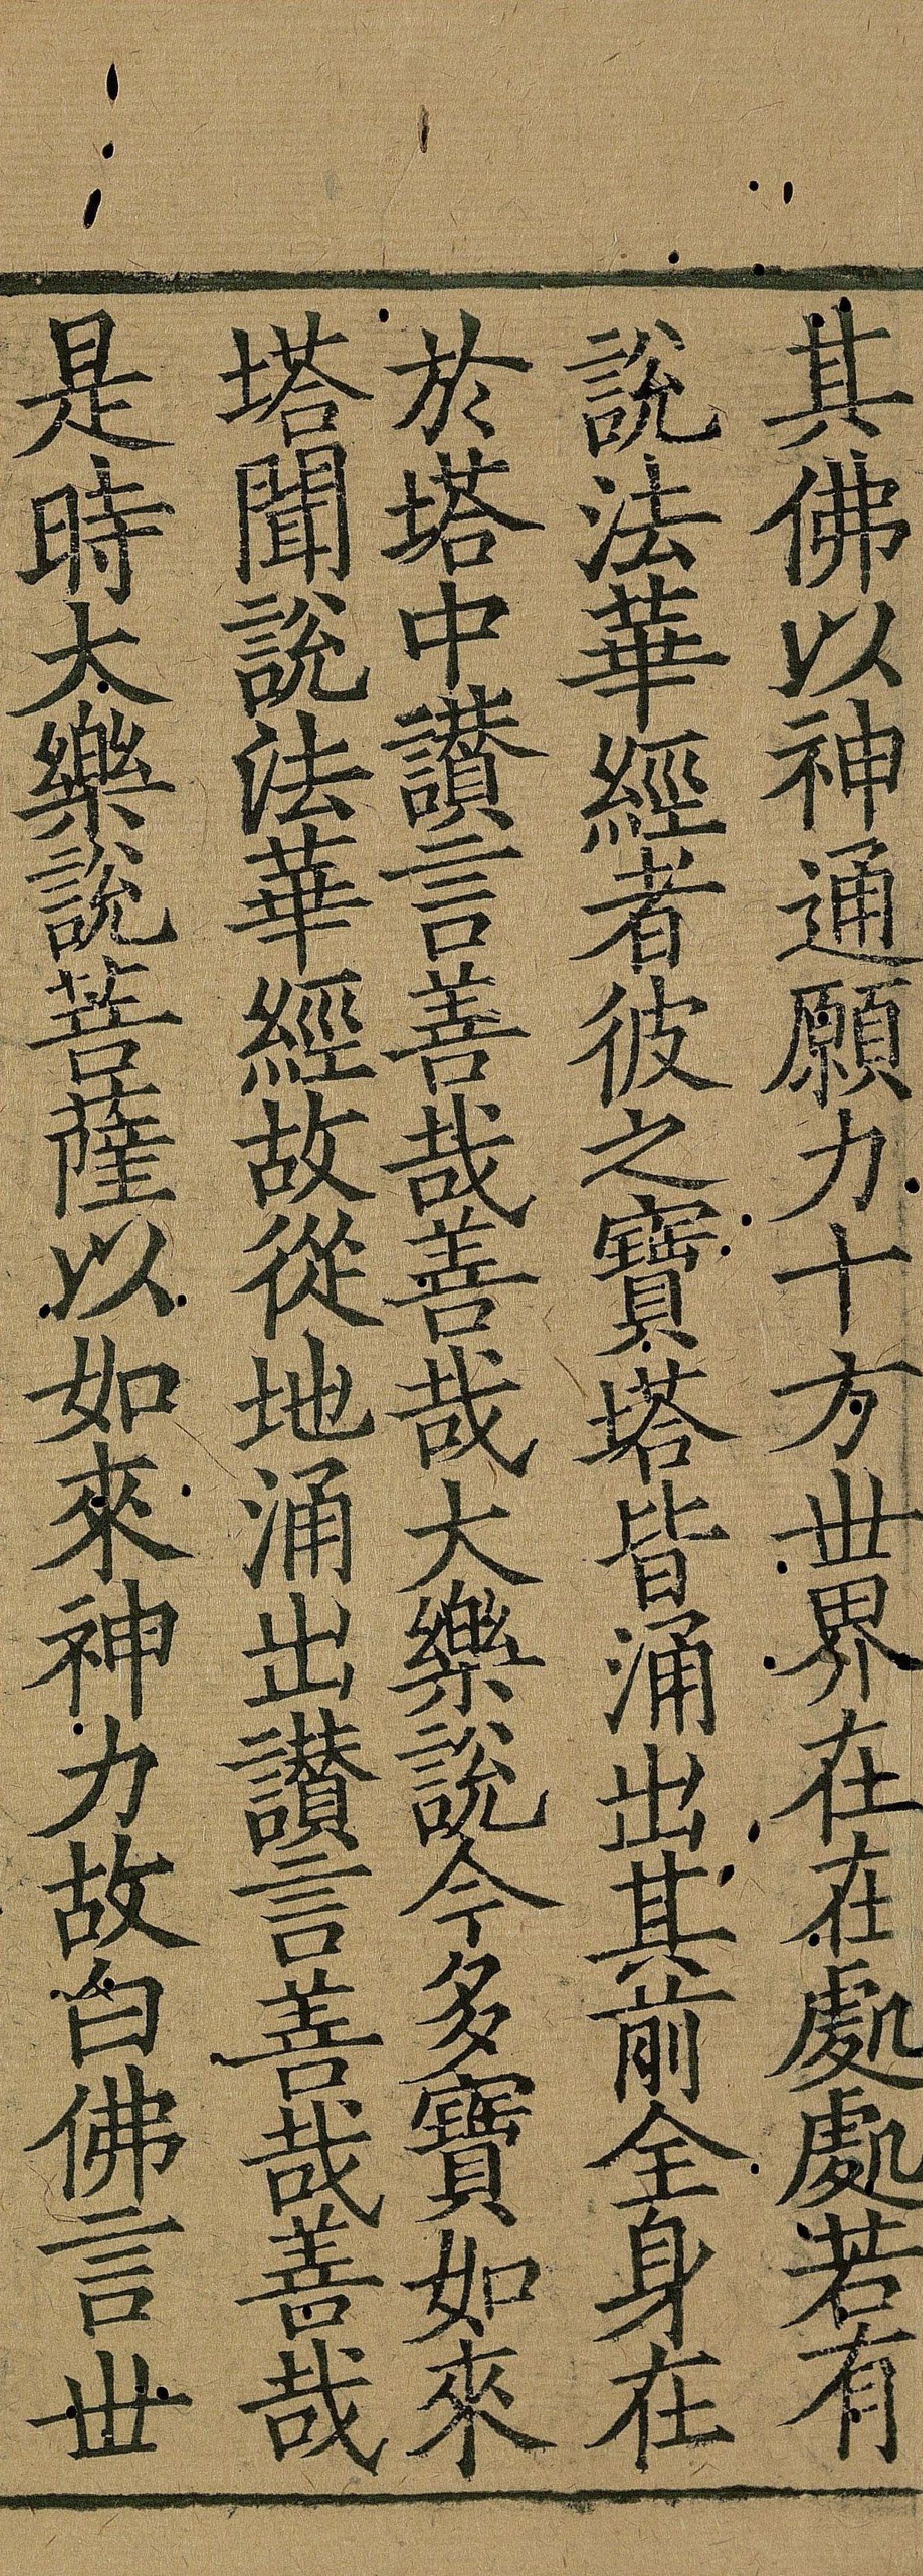 其佛以神通願力十方丗界在在處處若有
說法華經者彼之寶塔皆涌出其前全身在
於塔中讃言善哉善哉大樂說今多寶如來
塔聞說法華經故從地涌出讃言善哉善哉
是時大樂說菩薩以如來神力故白佛言丗